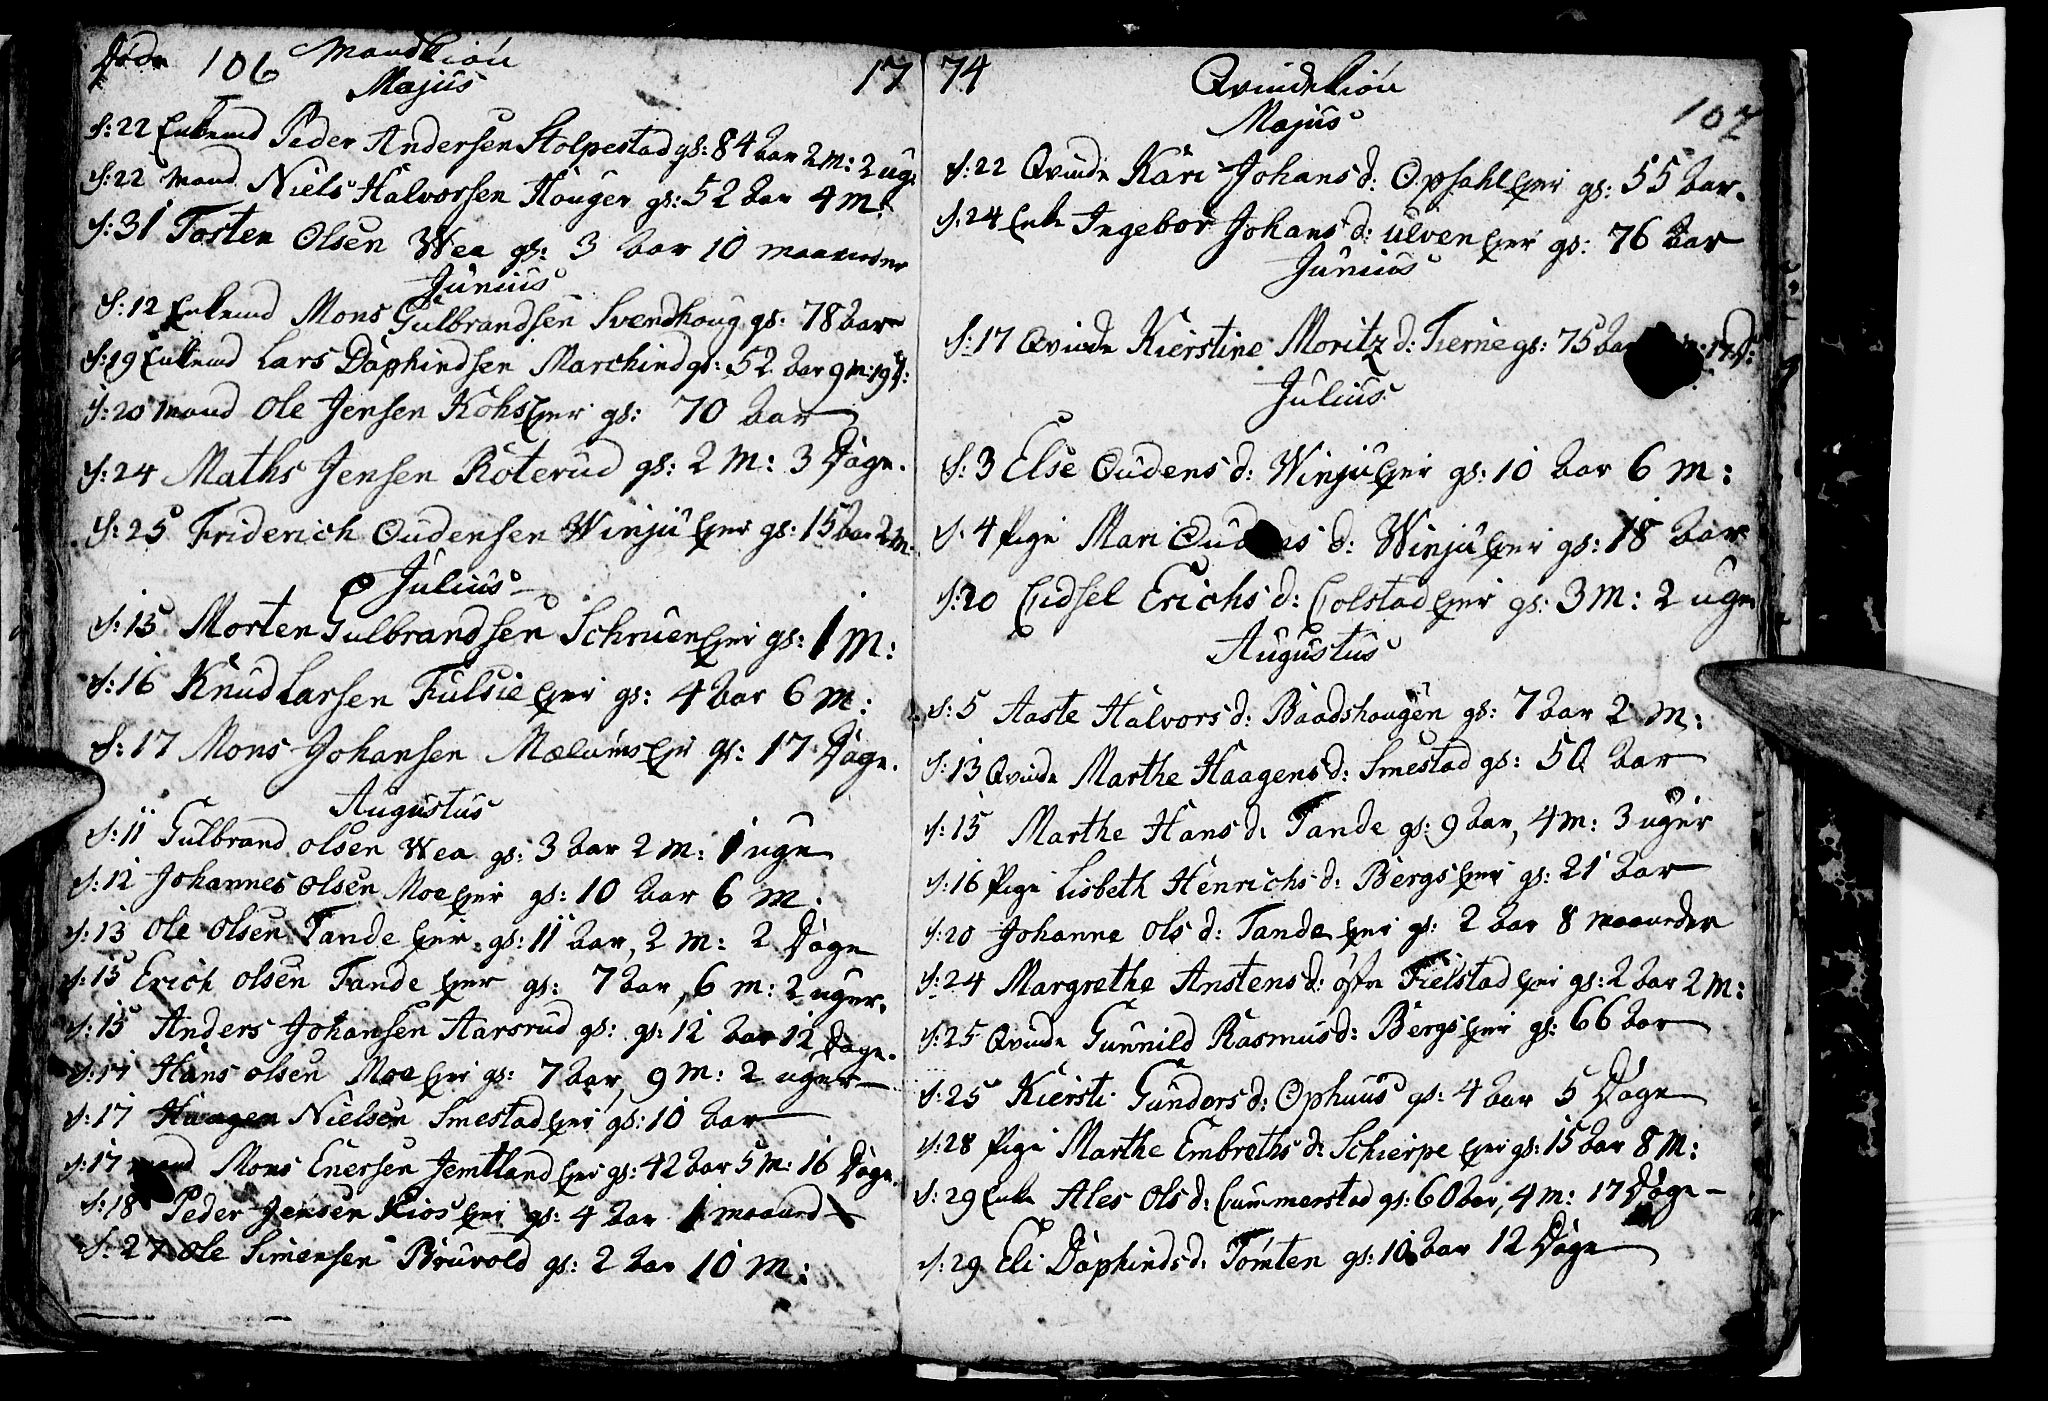 Døde 106 Mandkiøn 17
Majus
d: 22 Enkemd Peder Andersen Stolpestad gl: 84 aar 2 m: 2 ug:
d: 22 Mand Niels Halvorsen Houger gl: 52 aar 4 m:
d: 31 Tosten Olsen Wea gl: 3 aar 10 maaneder
Junius
d: 12 Enkemd Mons Gulbrandsen Svendhoug gl: 78 aar
d: 19 Enkemd Lars Daphindsen Marchind gl: 52 aar 9 m: 19 D:
d: 20 Mand Ole Jensen Kohs Eier gl: 70 aar
d: 24 Maths Jensen Roterud gl: 2 M: 3 Dage.
d: 25 Friderich Oudensen Winju Eier gl: 15 aar 2 M.
Julius
d: 15 Morten Gulbrandsen Schruen Eier gl: 1 M:
d: 16 Knud Larsen Fulsie Eier gl: 4 aar 6 m:
d: 17 Mons Johansen Mælums Eier gl: 17 Dage.
Augustus
d: 11 Gulbrand Olsen Wea gl: 3 aar 2 m: 1 uge
d: 12 Johannes Olsen Moe Eier gl: 10 aar 6 m.
d: 13 Ole Olsen Tande Eier gl: 11 aar, 2 m: 2 Dage
d: 15 Erich Olsen Tande Eier gl: 7 aar, 6 m: 2 uger.
d: 15 Anders Johansen Aarsrud gl: gl: 12 aar 12 Dage.
d: 17 Hans Olsen Moe Eier gl: 7 aar, 9 M: 2 uger
d: 17 Haagen Nielsen Smestad Eier gl: 10 aar
d: 17 mand Mons Enersen Jemtland Eier gl: 42 aar 5 M: 16 Dage.
d: 18 Peder Jensen Kios Eier gl: 4 aar 1 maaned
d: 27 Ole Simensen Bruvold gl: 2 aar 10 M:
74 Qvindekiøn
107
Majus
d: 22 Qvinde Kari Johans d: Opsahl Eier gl: 55 aar.
d: 24 Enke Ingebor Johans d: Ulven Eier gl: 76 aar
Junius
d: 17 Qvinde Kierstine Moritz d: Tierne gl: 75 aar 17 D:
Julius
d: 3 Else Oudens d: Winju Eier gl: 10 aar 6 M:
d: 4 Pige Mari Oudens d: Winju Eier gl: 18 aar
d: 20 Eidsel Erichs d: Colstad Eier gl: 3 M: 2 uger
Augustus
d: 5 Aaste Halvors d: Baadshougen gl: 7 aar 2 M:
d: 13 Qvinde Marthe Haagens d: Smestad gl: 50 aar
d: 15 Marthe Hans d: Tande gl: 9 aar, 4 M: 3 uger
d: 16 Pige Lisbeth Henrichs d: Bergs Eier gl: 21 aar
d: 20 Johanne Ols d: Tande Eier gl: 2 aar 8 maaneder
d: 24 Margrethe Anstens d: østre Fielstad Eier gl: 2 aar 2 M:
d: 25 Qvinde Gunnild Rasmus d: Bergs Eier gl: 66 aar
d: 25 Kiersti Gundors d: Ophuus gl: 4 aar 5 Dage
d: 28 Pige Marthe Embreths d: Schierpe Eier gl: 15 aar 8 M:
d: 29 Enke Ales Ols d: Cummerstad gl: 60 aar, 4 m: 17 Dage
d: 29 Eli Daphinds d: Tomten gl: 10 aar 12 Dage